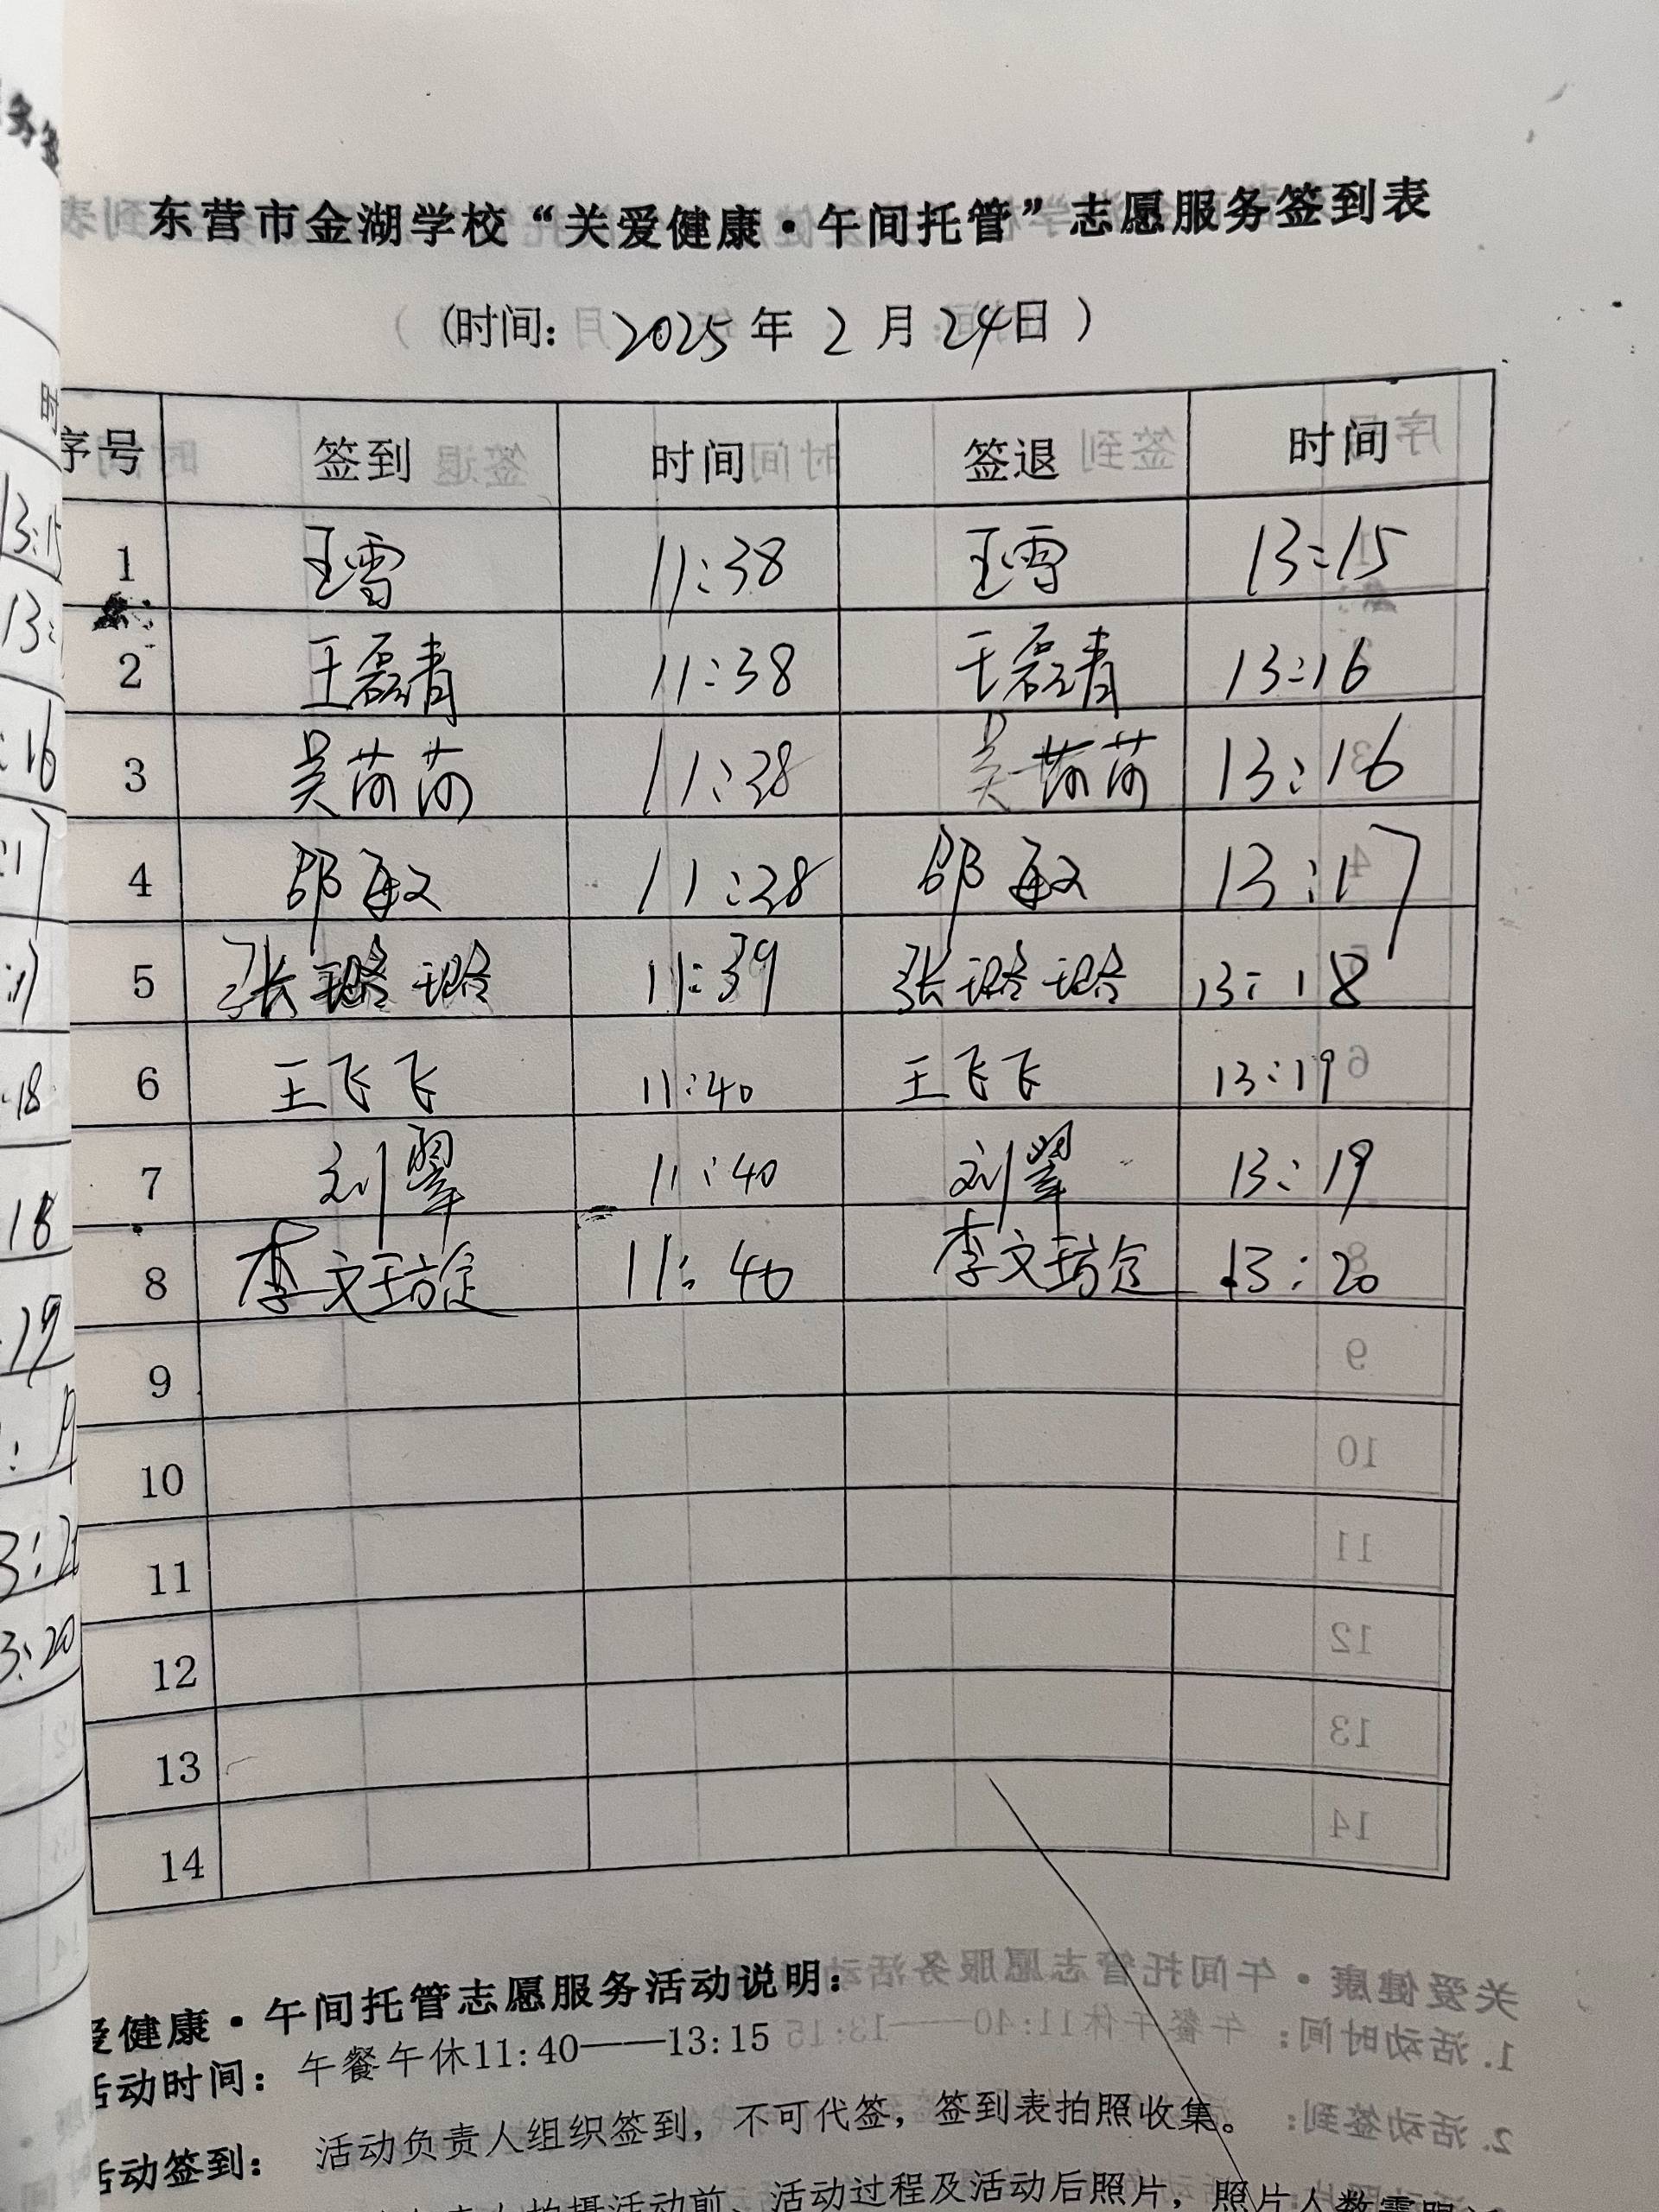 东营市金湖学校“关爱健康·午间托管”志愿服务签到表
(时间: 2025年 2月 24日 )
序号 签到 时间 签退 时间
1 王雪 11:38 王雪 13:15
2 王磊青 11:38 王磊青 13:16
3 吴苘苘 11:38 吴苘苘 13:16
4 邵敏 11:38 邵敏 13:17
5 张璐璐 11:39 张璐璐 13:18
6 王飞飞 11:40 王飞飞 13:19
7 刘翠 11:40 刘翠 13:19
8 李文 11:40 李文 13:20
9
10
11
12
13
14
爱健康·午间托管志愿服务活动说明:
活动时间: 午餐午休11:40——13:15
活动签到: 活动负责人组织签到，不可代签，签到表拍照收集。
拍摄活动前、活动过程及活动后照片，照片人数需